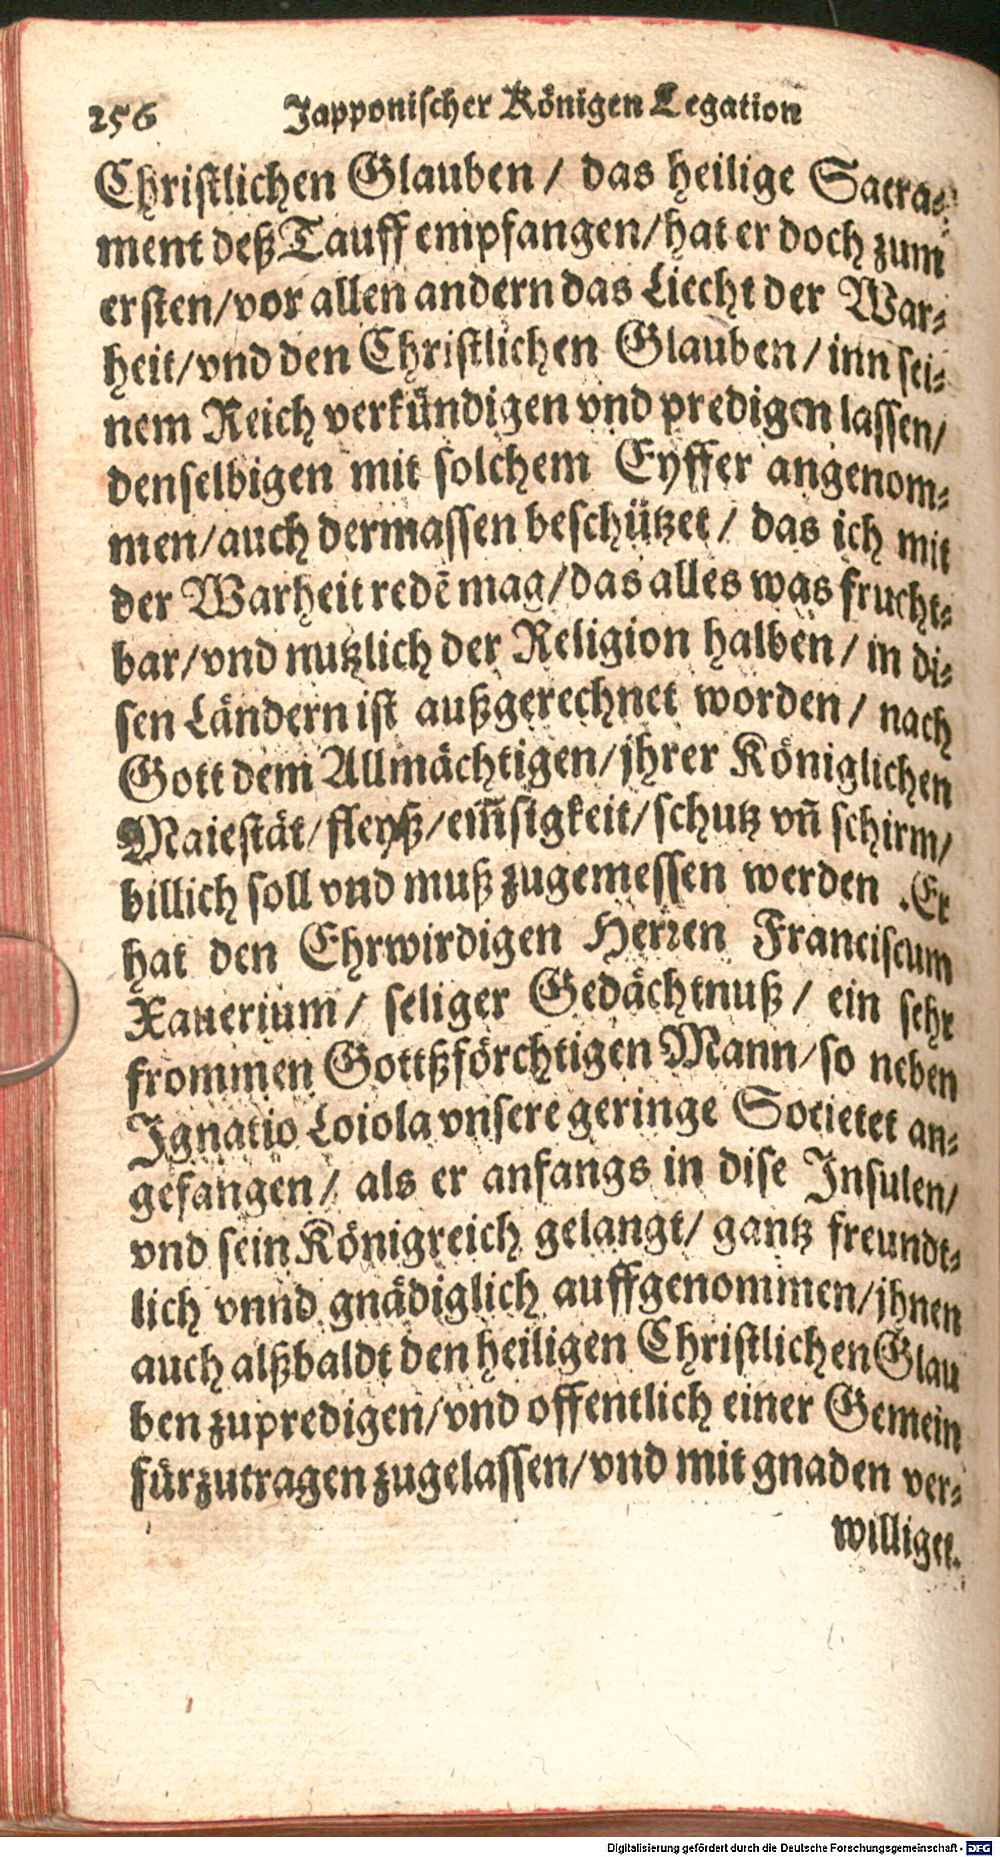 256 Japponischer Königen Legation
Christlichen Glauben / das heilige Sacra-
ment deß Tauff empfangen/hat er doch zum
ersten/vor allen andern das Liecht der War-
heit/vnd den Christlichen Glauben / inn sei-
nem Reich verkündigen vnd predigen lassen/
denselbigen mit solchem Eyffer angenom-
men/auch dermassen beschützet / das ich mit
der Warheit redē mag/das alles was frucht-
bar/vnd nutzlich der Religion halben / in di-
sen Ländern ist außgerechnet worden / nach
Gott dem Allmächtigen/jhrer Königlichen
Maiestät/fleyß/em̃sigkeit/schutz vñ schirm/
billich soll vnd muß zugemessen werden . Er
hat den Ehrwirdigen Herren Franciscum
Xauerium / seliger Gedächtnuß / ein sehr
frommen Gottßförchtigen Mann/so neben
Ignatio Loiola vnsere geringe Societet an-
gefangen / als er anfangs in dise Insulen/
vnd sein Königreich gelangt/ gantz freundt-
lich vnnd gnädiglich auffgenommen/jhnen
auch alßbaldt den heiligen Christlichen Glau
ben zupredigen/vnd offentlich einer Gemein
fürzutragen zugelassen/vnd mit gnaden ver-
williget.
Digitalisierung gefördert durch die Deutsche Forschungsgemeinschaft - DFG